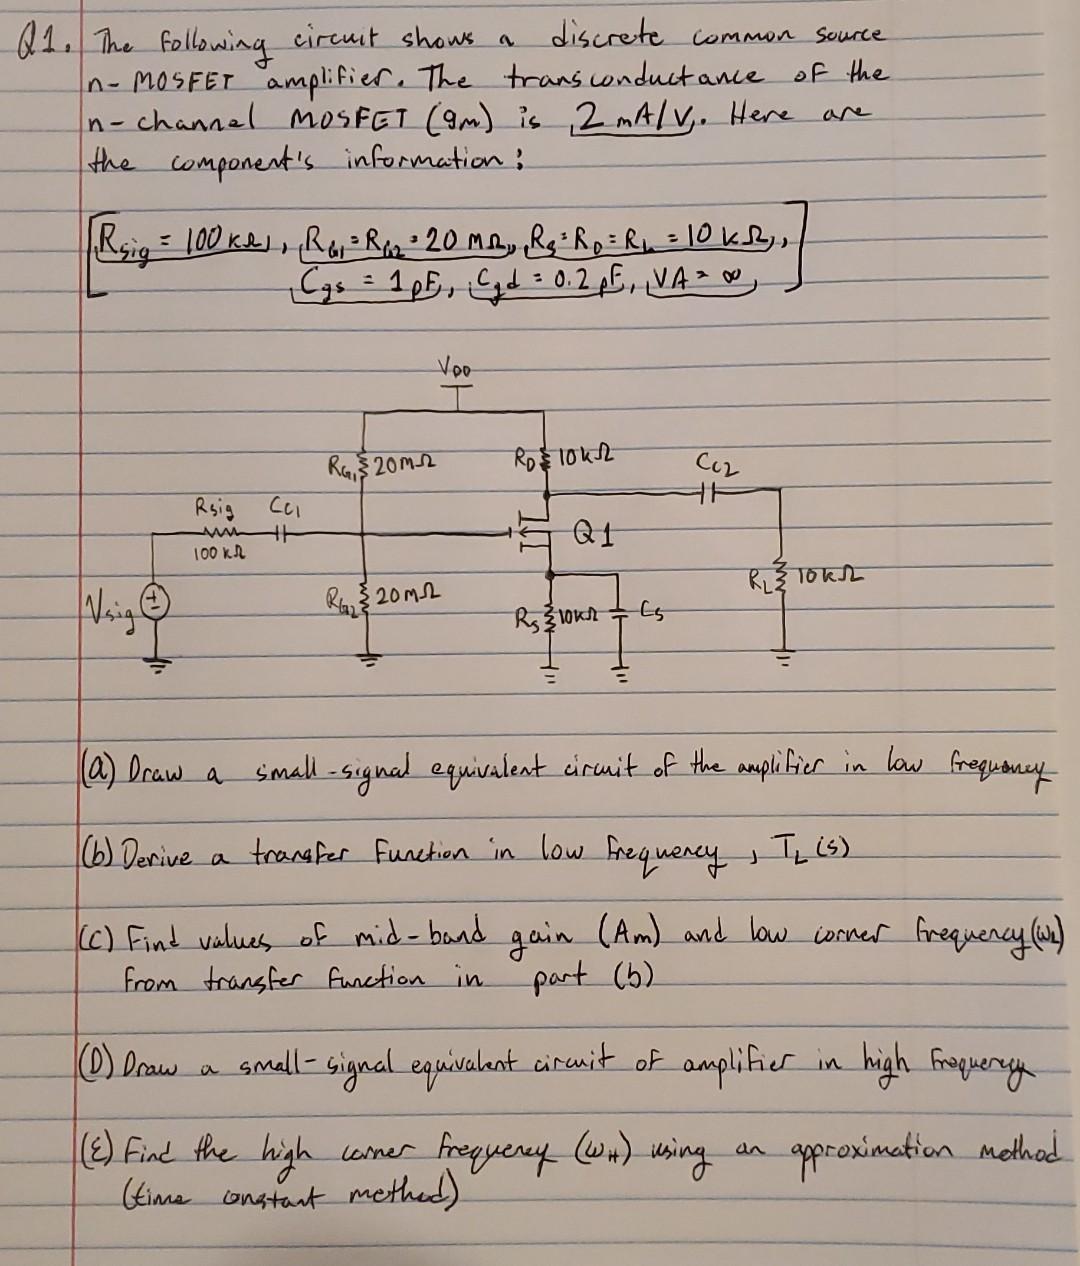 Q1. The following circuit shows a discrete common source
n-MOSFET amplifier. The transconductance of the
n-channel MOSFET (gm) is 2 mA/V. Here are
the component's information:
[Rsig = 100 kΩ, RG1 = RG2 = 20 MΩ, RS = RD = RL = 10 kΩ,
Cgs = 1 pF, Cgd = 0.2 pF, VA = ∞]
VDD
RG1 20MΩ
RD 10kΩ
CC2
Rsig CC1
100 kΩ
Q1
Vsig
RG2 20MΩ
RS 10kΩ CS
RL 10kΩ
(a) Draw a small-signal equivalent circuit of the amplifier in low frequency
(b) Derive a transfer function in low frequency, TL(s)
(c) Find values of mid-band gain (Am) and low corner frequency (ωL)
from transfer function in part (b)
(D) Draw a small-signal equivalent circuit of amplifier in high frequency
(E) Find the high corner frequency (ωH) using an approximation method
(time constant method)